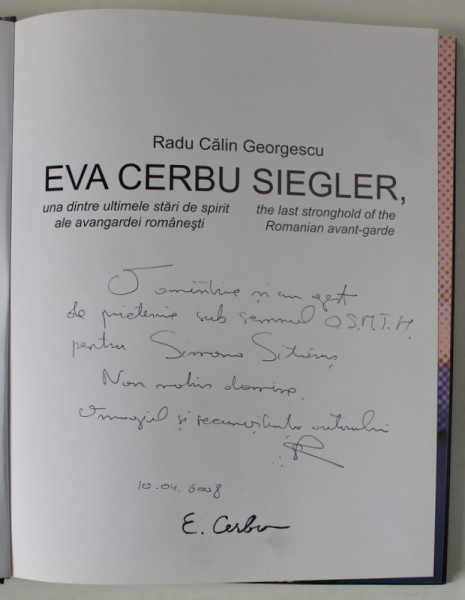 Radu Călin Georgescu
EVA CERBU SIEGLER,
una dintre ultimele stări de spirit
ale avangardei românești
the last stronghold of the
Romanian avant-garde
O amintire și un gest
de prietenie sub semnul O.S.M.T.H.
pentru Simona
Non nobis domine.
Omagiul și recunoștința autorului
10.04.2008
E. Cerbu